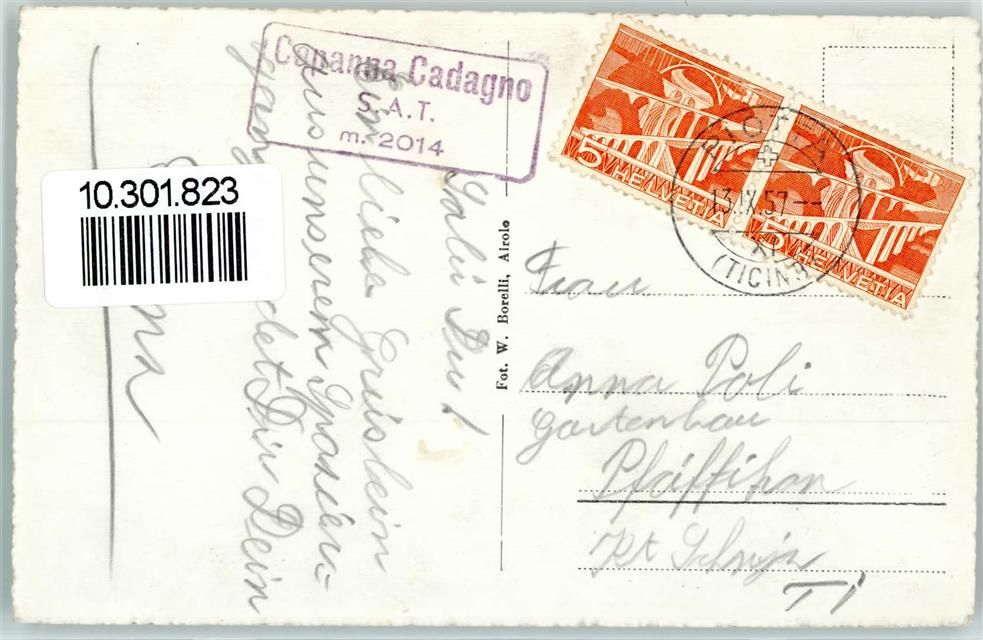 Capanna Cadagno
S. A. T.
m. 2014
10.301.823
Salü Du!
Ein liebes Grüsslein
aus unserem Spazier-
gang
det Dir Dein
Fot. W. Borelli, Airolo
5 HELVETIA
5 HELVETIA
PIOTTA
13.IX.57--
(TICINO)
Frau
Anna Poli
Gartenbau
Pfäffikon
Kt Schwyz